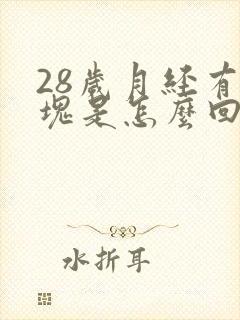 28歲月經有
塊是怎麼回
水折耳